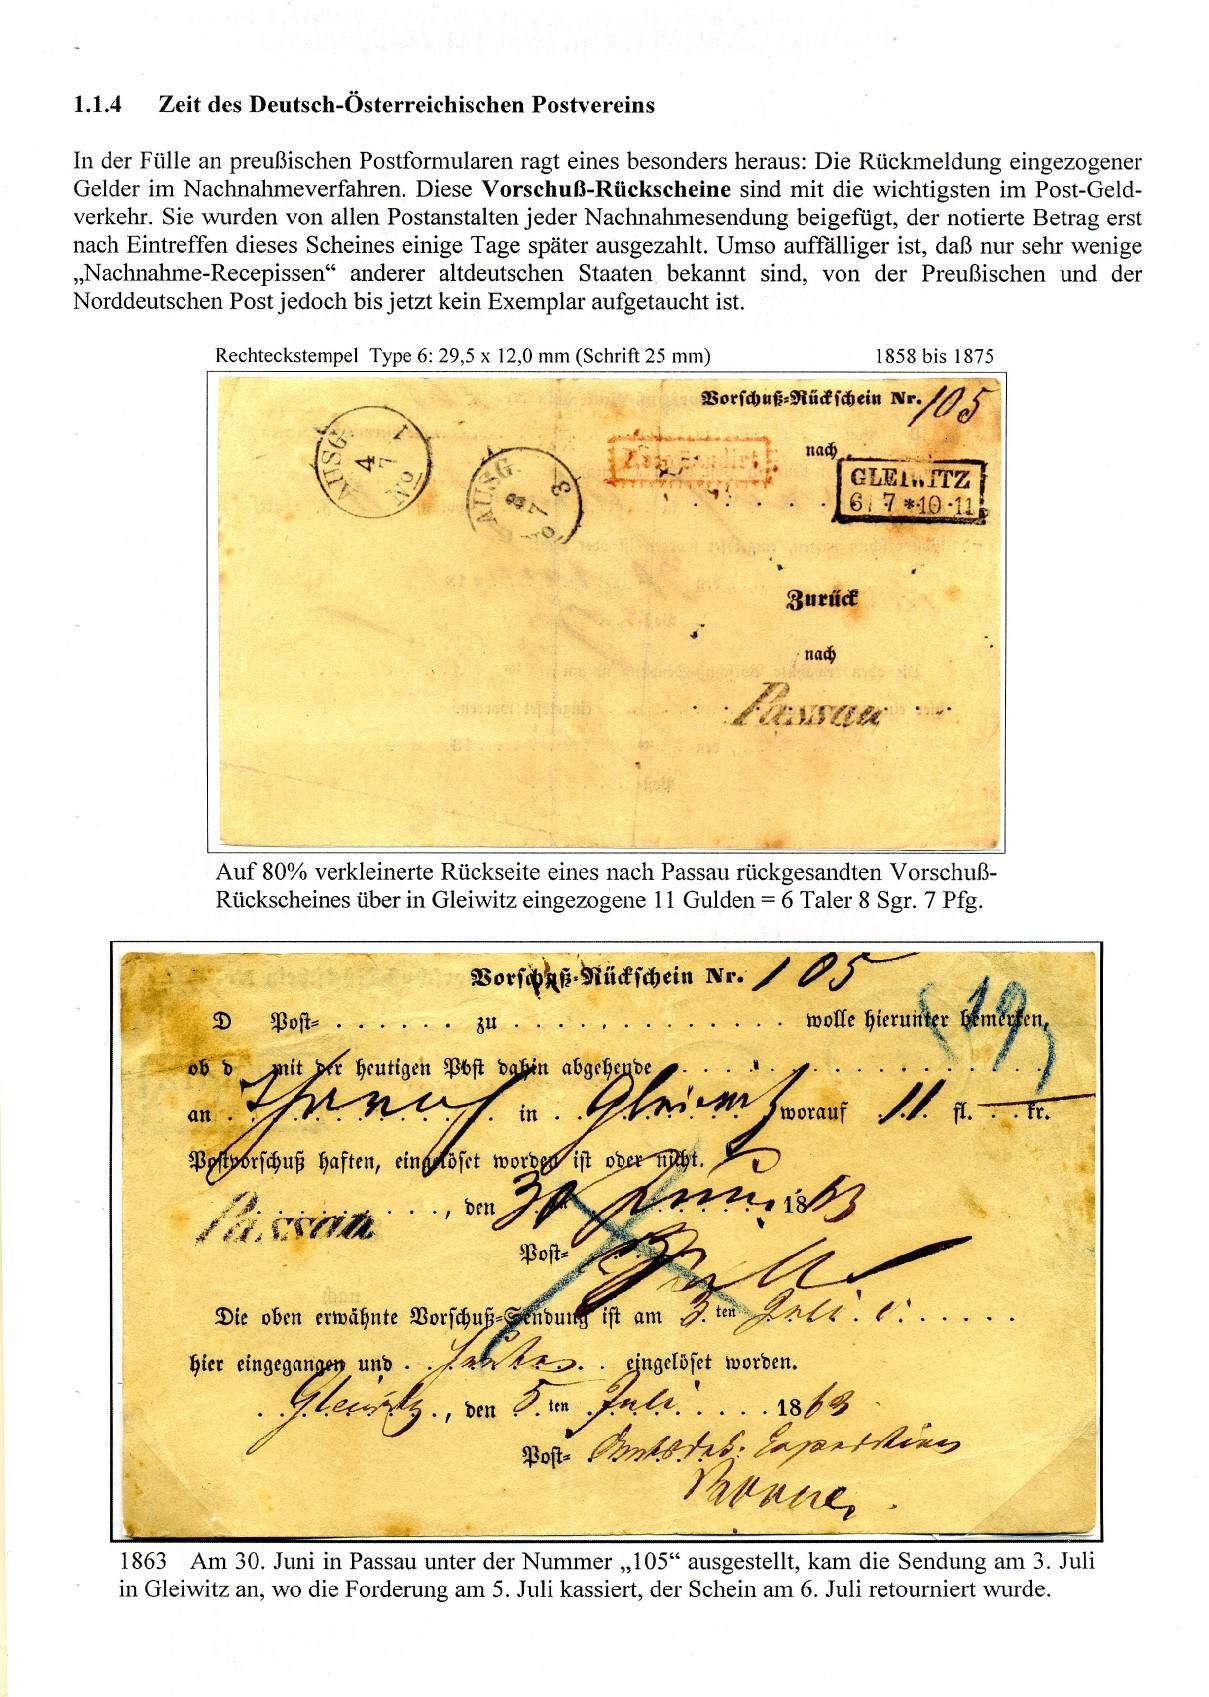 1.1.4 Zeit des Deutsch-Österreichischen Postvereins
In der Fülle an preußischen Postformularen ragt eines besonders heraus: Die Rückmeldung eingezogener
Gelder im Nachnahmeverfahren. Diese Vorschuß-Rückscheine sind mit die wichtigsten im Post-Geld-
verkehr. Sie wurden von allen Postanstalten jeder Nachnahmesendung beigefügt, der notierte Betrag erst
nach Eintreffen dieses Scheines einige Tage später ausgezahlt. Umso auffälliger ist, daß nur sehr wenige
„Nachnahme-Recepissen“ anderer altdeutschen Staaten bekannt sind, von der Preußischen und der
Norddeutschen Post jedoch bis jetzt kein Exemplar aufgetaucht ist.
Rechteckstempel Type 6: 29,5 x 12,0 mm (Schrift 25 mm) 1858 bis 1875
Vorschuß-Rückschein Nr. 105
AUSG. 1
4
7
AUSG. 3
8
7
nach
GLEIWITZ
6 7 *10-11
Zurück
nach
Passau
Auf 80% verkleinerte Rückseite eines nach Passau rückgesandten Vorschuß-
Rückscheines über in Gleiwitz eingezogene 11 Gulden = 6 Taler 8 Sgr. 7 Pfg.
Vorschuß-Rückschein Nr. 105
19
D Post- . . . . . . zu . . . . . . . . . . . . . wolle hierunter bemerken,
ob d mit der heutigen Post dahin abgehende
an in Gleiwitz worauf 11 fl. — kr.
Postvorschuß haften, eingelöset worden ist oder nicht.
Passau, den 30 Juni 1863
Post-
Die oben erwähnte Vorschuß-Sendung ist am 3.ten Juli
hier eingegangen und eingelöset worden.
Gleiwitz, den 5ten Juli 1863
Post- Expedition
1863 Am 30. Juni in Passau unter der Nummer „105“ ausgestellt, kam die Sendung am 3. Juli
in Gleiwitz an, wo die Forderung am 5. Juli kassiert, der Schein am 6. Juli retourniert wurde.